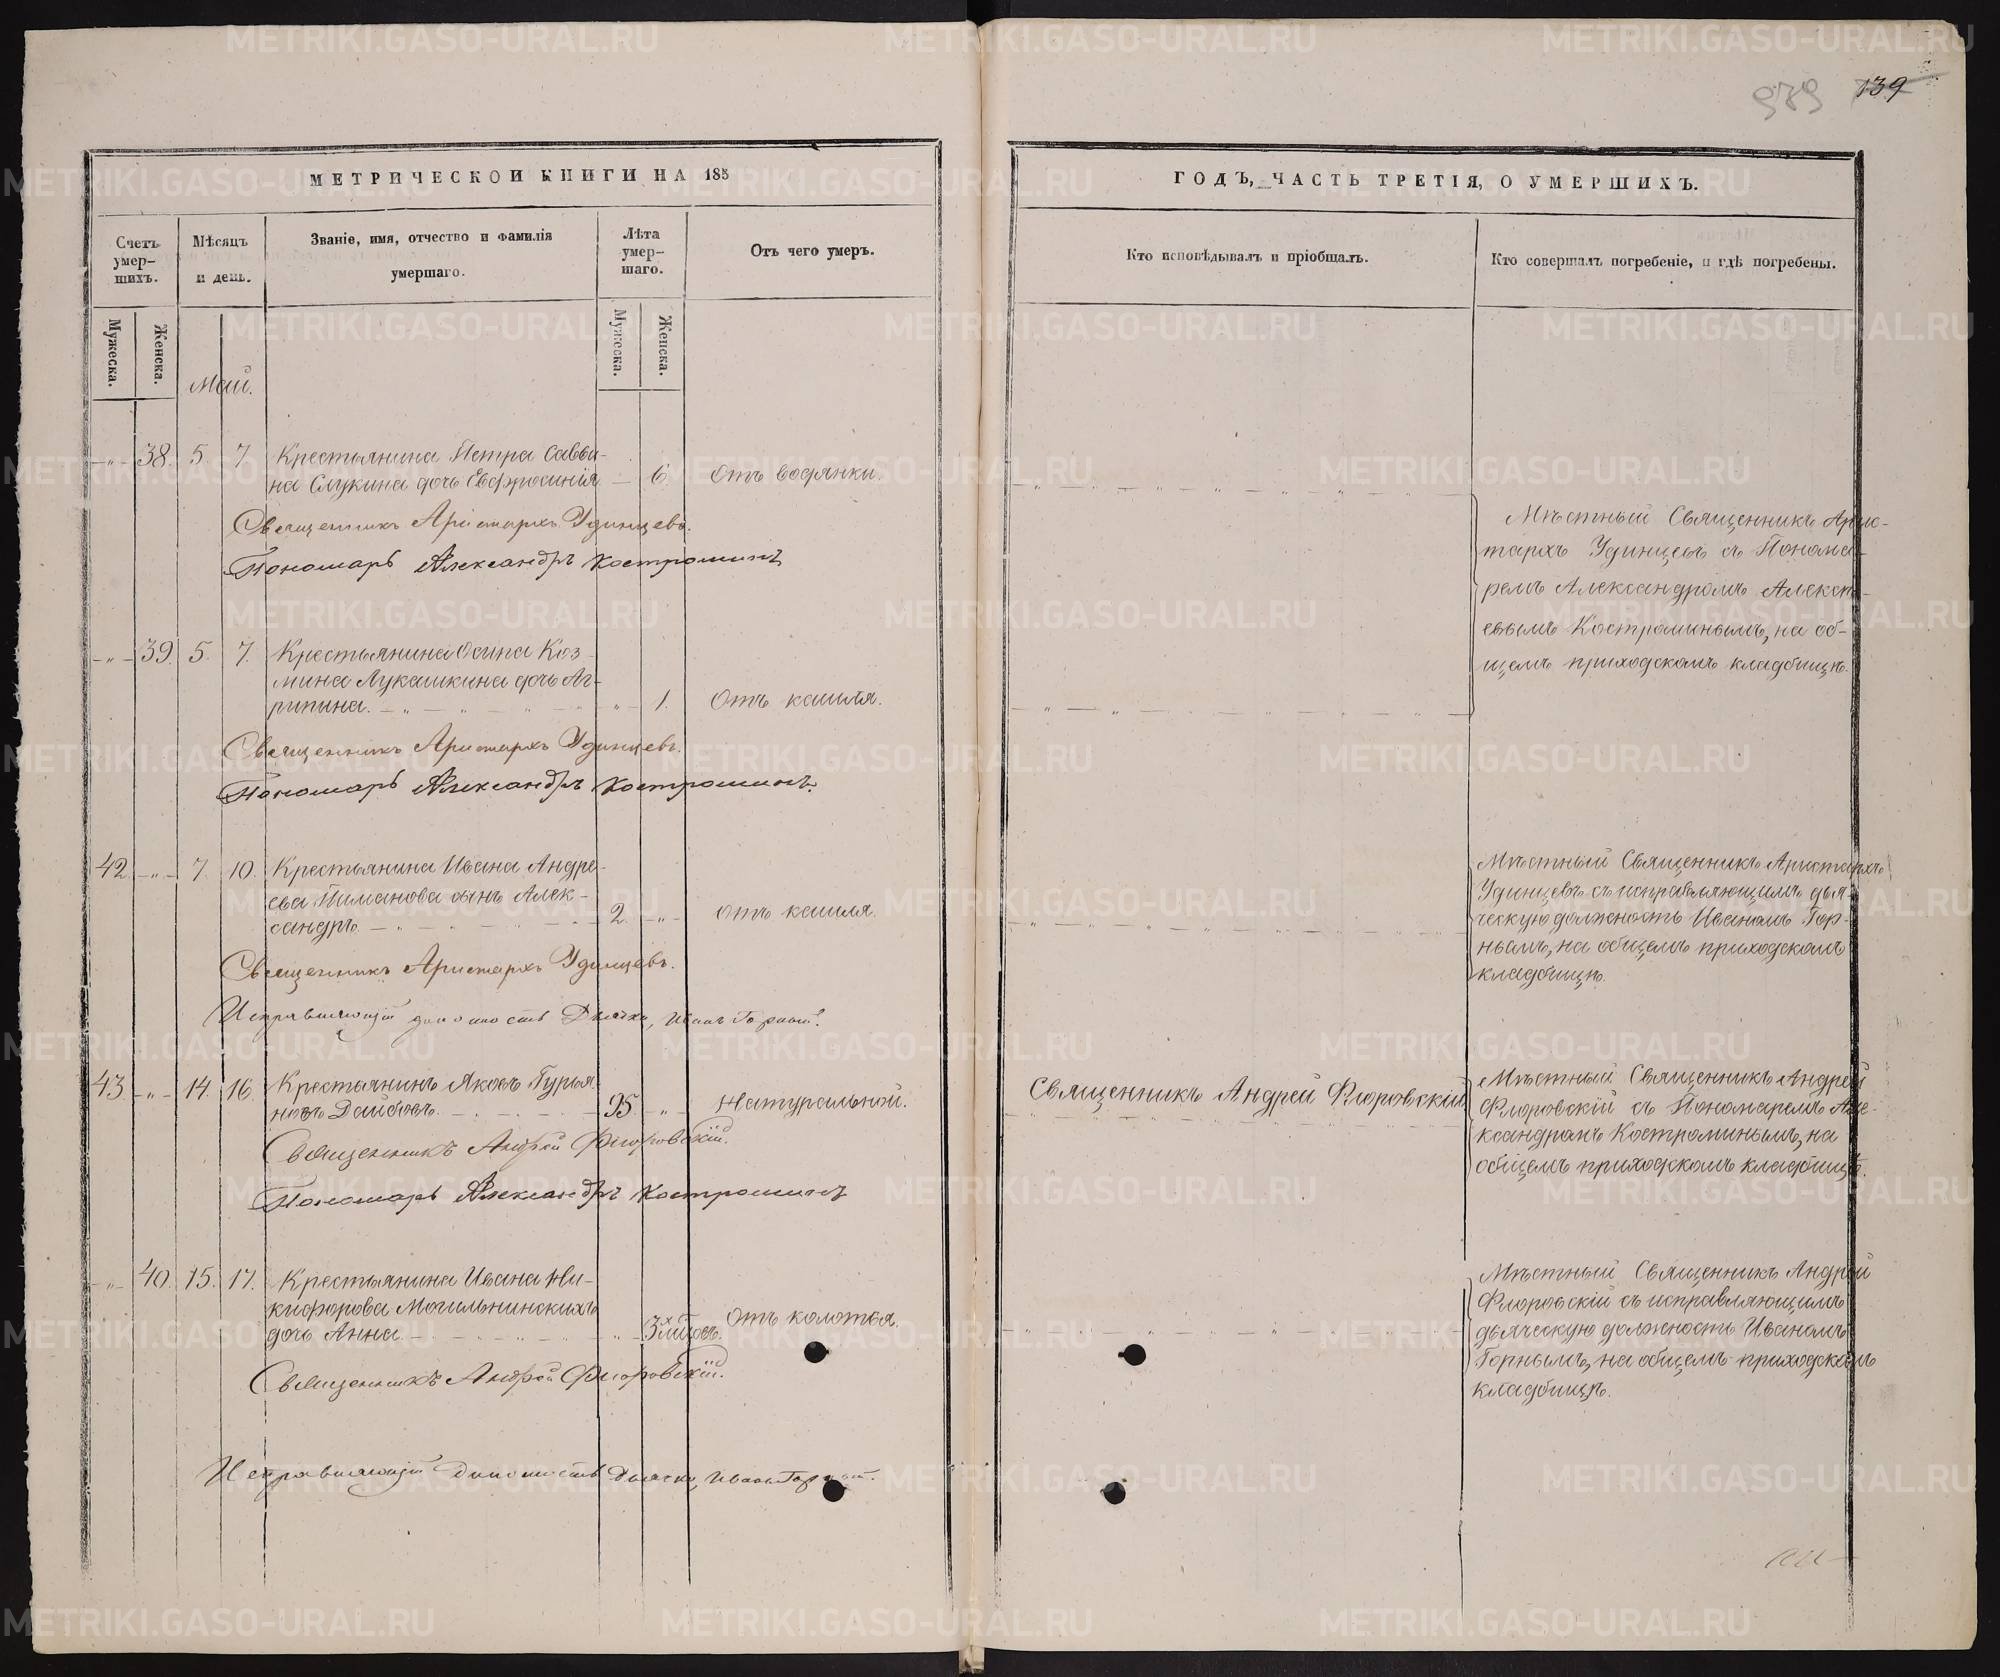 979 139
МЕТРИЧЕСКОЙ КНИГИ НА 185
Счетъ умер-
шихъ.
Мѣсяцъ
и день.
Званіе, имя, отчество и фамилія
умершаго.
Лѣта
умер-
шаго.
Отъ чего умеръ.
Мужеска.
Женска.
Мужеска.
Женска.
Май.
-„- 38. 5. 7. Крестьянина Петра Савви-
на Слукина дочь Евфросинія — 6. Отъ водянки.
Священникъ Аристархъ Удинцевъ.
Пономарь Александръ Костроминъ
-„- 39. 5. 7. Крестьянина Осипа Коз-
мина Лукашкина дочь Аг-
рипина. -„- 1. Отъ кашля.
Священникъ Аристархъ Удинцевъ.
Пономарь Александръ Костроминъ.
42 -„- 7. 10. Крестьянина Ивана Андре-
ева Пиманова сынъ Алек-
сандръ. 2. -„- Отъ кашля.
Священникъ Аристархъ Удинцевъ.
Исправляющій должность Дьячка, Иванъ Горный.
43 -„- 14. 16. Крестьянинъ Яковъ Гурья-
новъ Дайбовъ. 95 -„- Натуральной.
Священникъ Андрей Флоровскій.
Пономарь Александръ Костроминъ
-„- 40. 15. 17. Крестьянина Ивана Ни-
кифорова Могильнинскихъ
дочь Анна. -„- 3х мѣсяц. Отъ колотья.
Священникъ Андрей Флоровскій.
Исправляющій должность Дьячка, Иванъ Горный.
ГОДЪ, ЧАСТЬ ТРЕТІЯ, О УМЕРШИХЪ.
Кто исповѣдывалъ и пріобщалъ.
Кто совершалъ погребеніе, и гдѣ погребены.
Мѣстный Священникъ Арис-
тархъ Удинцевъ съ Понома-
ремъ Александромъ Алексѣ-
евымъ Костроминымъ, на об-
щемъ приходскомъ кладбищѣ.
Мѣстный Священникъ Аристархъ
Удинцевъ съ исправляющимъ дья-
ческую должность Иваномъ Гор-
нымъ, на общемъ приходскомъ
кладбищѣ.
Священникъ Андрей Флоровскій
Мѣстный Священникъ Андрей
Флоровскій съ Пономаремъ Але-
ксандромъ Костроминымъ, на
общемъ приходскомъ кладбищѣ.
Мѣстный Священникъ Андрей
Флоровскій съ исправляющимъ
дьяческую должность Иваномъ
Горнымъ, на общемъ приходскомъ
кладбищѣ.
METRIKI.GASO-URAL.RU